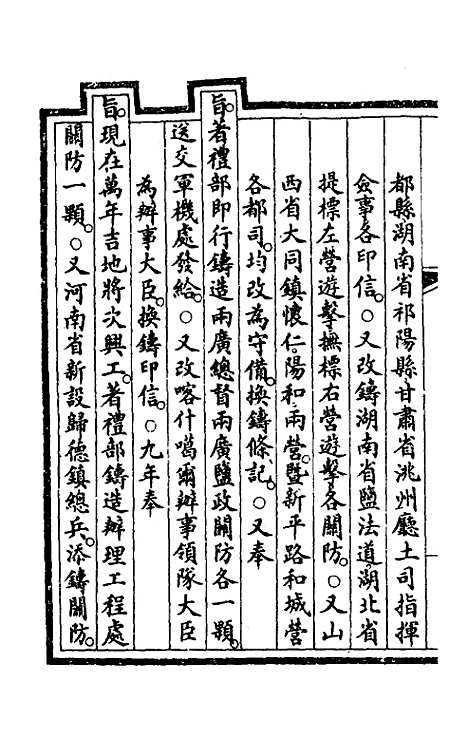 都縣湖南省祁陽縣甘肅省洮州廳土司指揮
僉事各印信。○又改鑄湖南省鹽法道湖北省
提標左營遊擊撫標右營遊擊各關防。○又山
西省大同鎮懷仁陽和兩營暨新平路和城營
各都司。均改為守備。換鑄條記。○又奉
旨。著禮部即行鑄造兩廣總督兩廣鹽政關防各一顆。
送交軍機處發給。○又改喀什噶爾辦事領隊大臣
為辦事大臣。換鑄印信。○九年奉
旨。現在萬年吉地將次興工。著禮部鑄造辦理工程處
關防一顆。○又河南省新設歸德鎮總兵。添鑄關防。